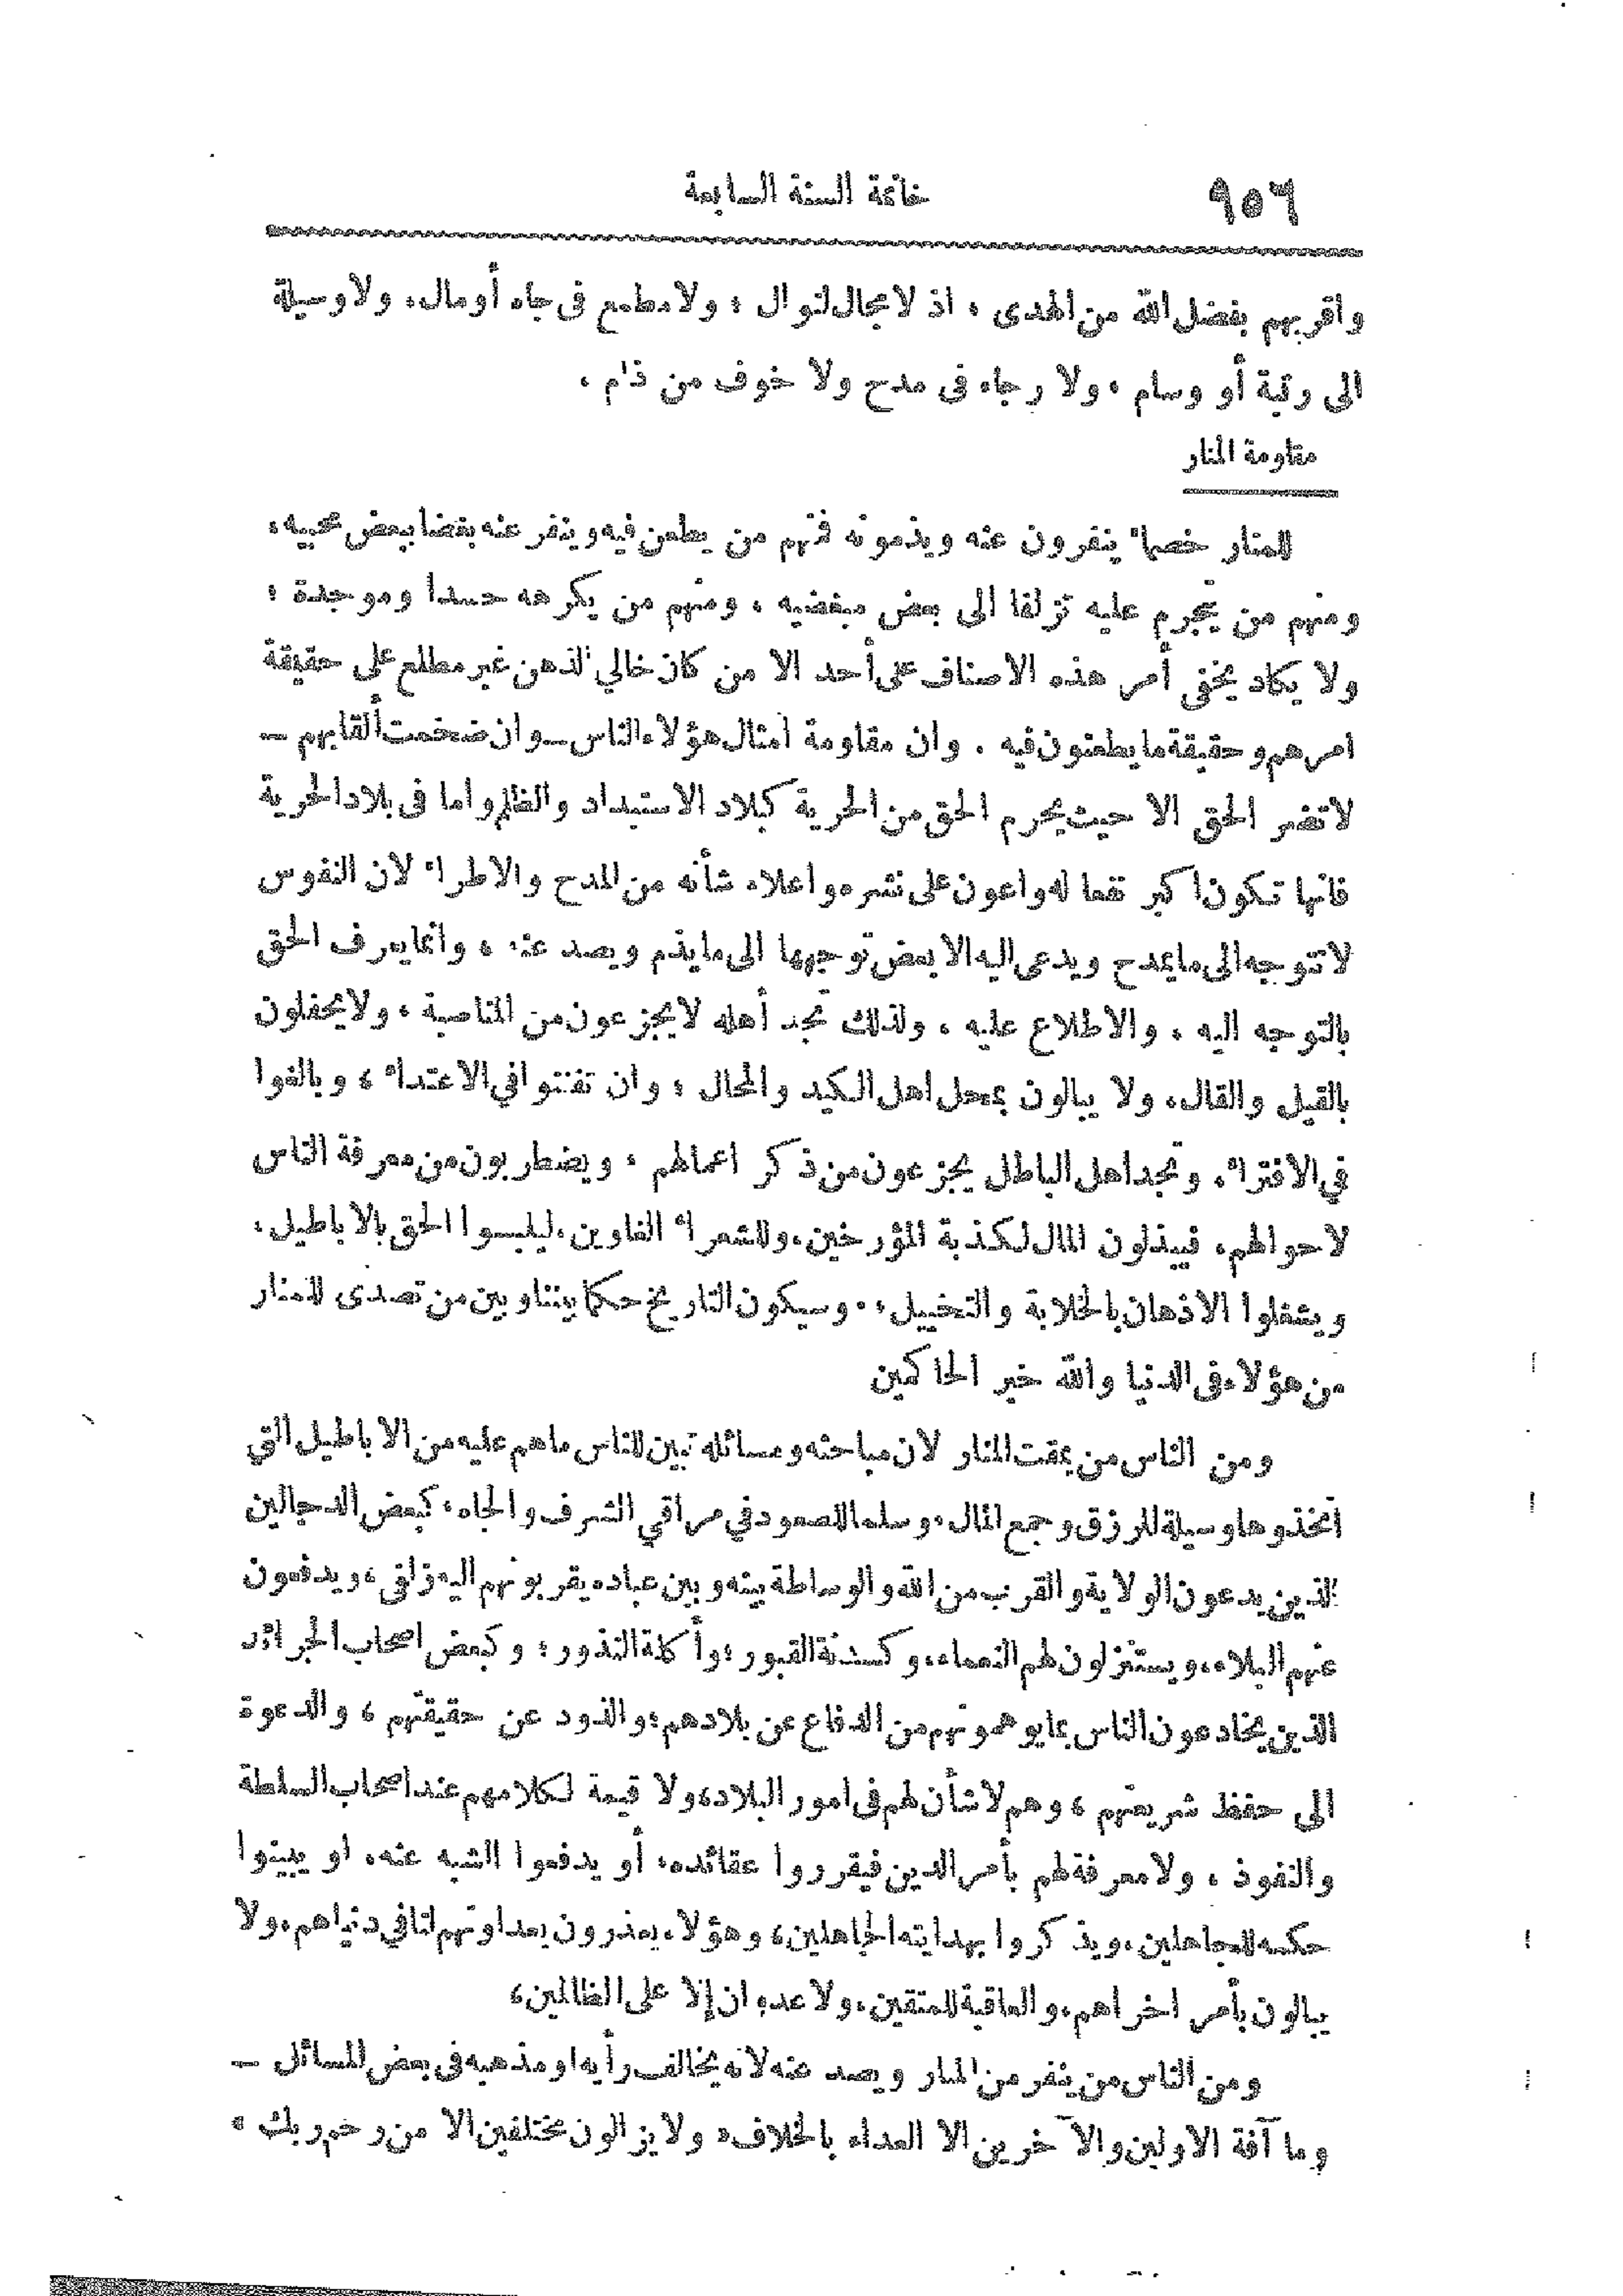 ٩٥٦
خاتمة السنة السابعة
واقربهم بفضل الله من الهدى ، اذ لا مجال لنوال ، ولا مطمع فى جاه أو مال ، ولا وسيلة
الى رتبة أو وسام ، ولا رجاء فى مدح ولا خوف من ذام .
مقاومة المنار
للمنار خصماء ينفرون عنه ويذمونه فمنهم من يطعن فيه وينفر عنه بغضا ببعض محبيه ،
ومنهم من يتجرم عليه تزلفا الى بعض مبغضيه ، ومنهم من يكرهه حسدا وموجدة ؛
ولا يكاد يخفى أمر هذه الاصناف على أحد الا من كان خالي الذهن غير مطلع على حقيقة
امرهم وحقيقة ما يطعنون فيه . وان مقاومة امثال هؤلاء الناس – وان ضخمت ألقابهم –
لا تضر الحق الا حيث يحرم الحق من الحرية كبلاد الاستبداد والظلم واما فى بلاد الحرية
فانها تكون اكبر نفعا له واعون على نشره واعلاء شأنه من المدح والاطراء لان النفوس
لا تتوجه الى ما يمدح ويدعى اليه الا بعض توجهها الى ما يذم ويصد عنه ، وانما يعرف الحق
بالتوجه اليه ، والاطلاع عليه ، ولذلك تجد أهله لا يجزعون من المناصبة ، ولا يحفلون
بالقيل والقال ، ولا يبالون بمحل اهل الكيد والمحال ؛ وان تفننوا في الاعتداء ، وبالغوا
في الافتراء ، وتجد اهل الباطل يجزعون من ذكر اعمالهم ، ويضطربون من معرفة الناس
لاحوالهم ، فيبذلون المال لكذبة المؤرخين ، وللشعراء الغاوين ، ليلبسوا الحق بالاباطيل ،
ويشغلوا الاذهان بالخلابة والتخييل ، . وسيكون التاريخ حكما بيننا وبين من تصدى للمنار
من هؤلاء فى الدنيا والله خير الحاكمين
ومن الناس من يمقت المنار لان مباحثه ومسائله تبين للناس ما هم عليه من الاباطيل التي
اتخذوها وسيلة للرزق وجمع المال ، وسلما للصعود في مراقي الشرف والجاه ، كبعض الدجالين
الذين يدعون الولاية والقرب من الله والوساطة بينه وبين عباده يقربونهم اليه زلفى ، ويدفعون
عنهم البلاء ، ويستنزلون لهم النعماء ، وكسدنة القبور ؛ وأكلة النذور ؛ وكبعض اصحاب الجرائد
الذين يخادعون الناس بما يوهمونهم من الدفاع عن بلادهم ؛ والذود عن حقيقتهم ، والدعوة
الى حفظ شريعتهم ، وهم لا شأن لهم فى امور البلاد ، ولا قيمة لكلامهم عند اصحاب السلطة
والنفوذ ، ولا معرفة لهم بأمر الدين فيقرروا عقائده ، أو يدفعوا الشبه عنه ، او يبينوا
حكمه للجاهلين ، ويذكروا بهدايته الجاهلين ، وهؤلاء يعذرون بعداوتهم لنا في دنياهم ، ولا
يبالون بأمر اخراهم ، والعاقبة للمتقين ، ولا عدوان إلا على الظالمين ،
ومن الناس من ينفر من المنار ويصد عنه لانه يخالف رأيه او مذهبه فى بعض المسائل –
وما آفة الاولين والآخرين الا العداء بالخلاف « ولا يزالون مختلفين الا من رحم ربك »